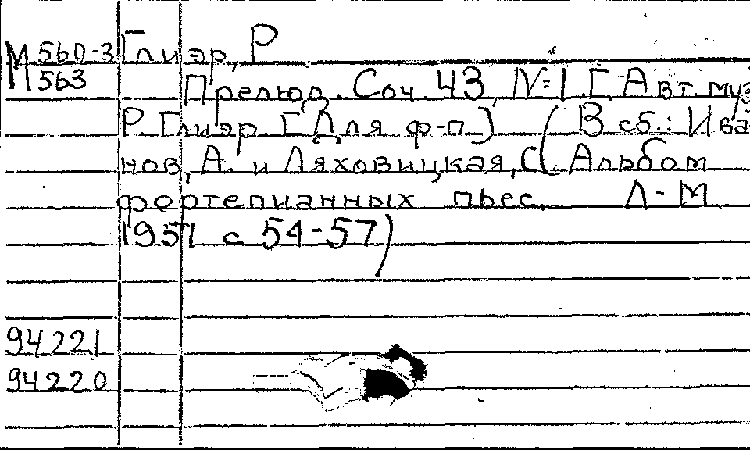 М 560-3 Глиэр, Р
563 Прелюд. Соч. 43, N=1 [Авт. муз
Р. Глиэр] [Для ф-п.] (В сб.: Ива
нов, А. и Ляховицкая, С. Альбом
фортепианных пьес. Л-М
1951 с 54-57)
94221
94220